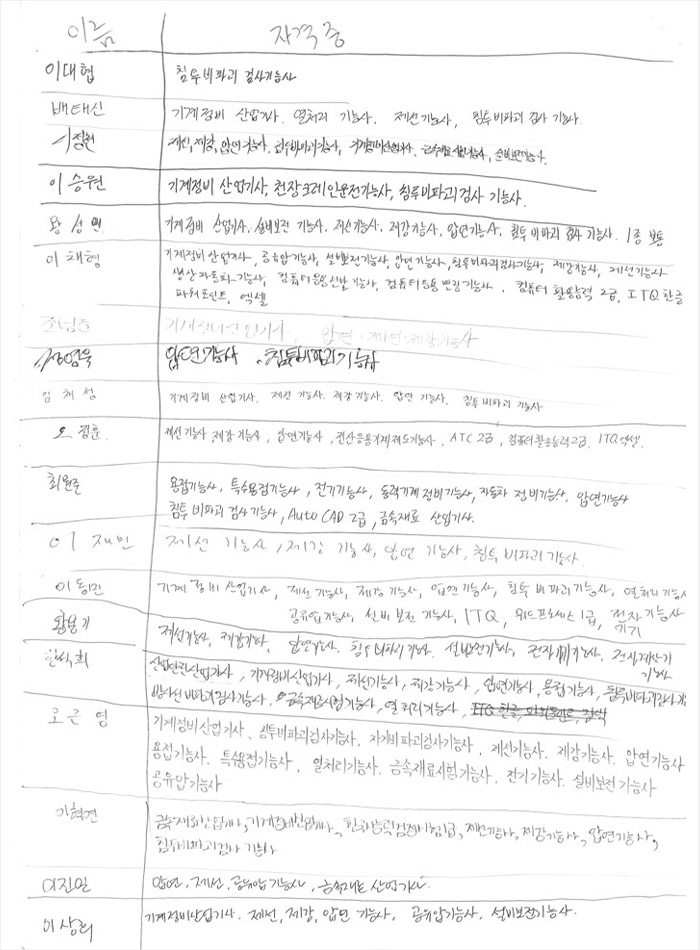 이름 자격증
이대협 침투비파괴 검사기능사
배태신 기계정비 산업기사. 열처리 기능사. 제선기능사, 침투비파괴검사 기능사.
제선, 제강, 압연기능사. 침투비파괴기능사, 기계정비산업기사. 금속재료시험기능사, 설비보전기능사.
이승원 기계정비 산업기사, 천장크레인운전기능사, 침투비파괴검사 기능사.
기계정비 산업기사, 설비보전 기능사. 제선기능사, 제강기능사, 압연기능사, 침투비파괴 검사 기능사. 1종 보통
이채형 기계정비산업기사, 공유압기능사, 설비보전기능사, 압연기능사, 침투비파괴검사기능사, 제강기능사, 제선기능사
생산자동화기능사, 컴퓨터응용선반기능사, 컴퓨터응용밀링기능사. 컴퓨터 활용능력 2급, ITQ 한글
파워포인트, 엑셀
기계정비산업기사, 압연. 제선. 제강기능사
압연기능사. 침투비파괴기능사
임채성 기계정비 산업기사. 제선 기능사. 제강기능사. 압연 기능사. 침투비파괴 기능사
제선기능사, 제강기능사, 압연기능사, 전산응용기계제도기능사, ATC 2급, 컴퓨터활용능력2급. ITQ엑셀.
최원준 용접기능사, 특수용접기능사, 전기기능사, 동력기계정비기능사, 자동차 정비기능사, 압연기능사
침투비파괴검사기능사, Auto CAD 2급, 금속재료 산업기사.
이재민 제선 기능사, 제강 기능사, 압연 기능사, 침투비파괴기능사
이동민 기계정비산업기사, 제선기능사, 제강기능사, 압연기능사, 침투비파괴기능사, 열처리기능사
공유압기능사, 설비보전기능사, ITQ, 워드프로세스 1급, 전자기기기능사
황용기 제선기능사, 제강기능사, 압연기능사. 침투비파괴기능사. 설비보전기능사, 전자기기기능사, 전자계산기기능사
산업안전산업기사, 기계정비산업기사, 제선기능사, 제강기능사, 압연기능사, 용접기능사, 침투비파괴검사기
방사선비파괴검사기능사, 금속재료시험기능사, 열처리기능사,
오근영 기계정비산업기사. 침투비파괴검사기능사. 자기비파괴검사기능사, 제선기능사. 제강기능사. 압연기능사
용접기능사. 특수용접기능사, 열처리기능사. 금속재료시험기능사. 전기기능사. 설비보전기능사
공유압기능사
이혁연 금속재료산업기사, 기계정비산업기사, 한국사능력검정시험1급, 제선기능사, 제강기능사, 압연기능사,
침투비파괴검사 기능사
이진일 압연. 제선. 공유압기능사, 금속재료 산업기사.
이상희 기계정비산업기사. 제선, 제강, 압연 기능사. 공유압기능사. 설비보전기능사.